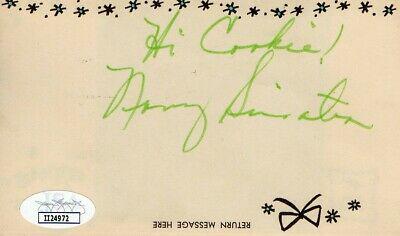 Hi Cookie!
Nancy Sinatra
II24972
RETURN MESSAGE HERE